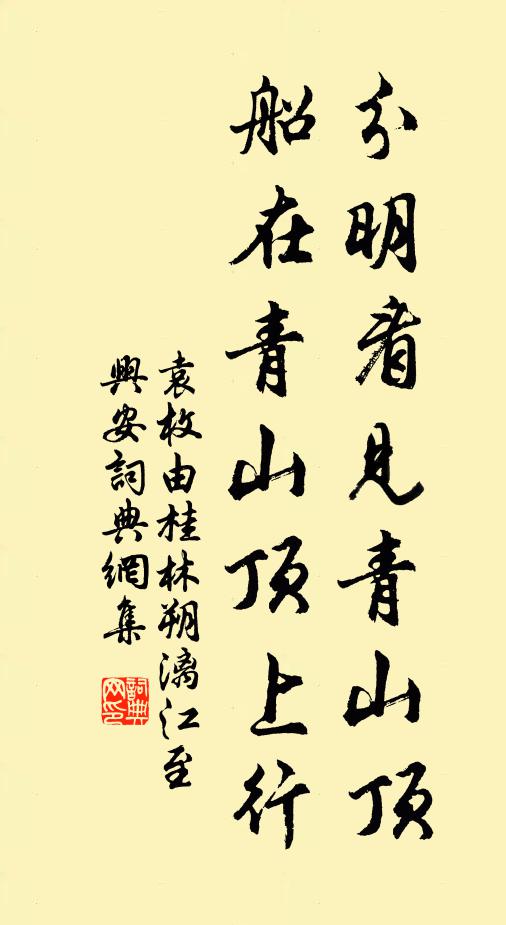 分明看見青山頂
船在青山頂上行
袁枚由桂林朔漓江至
興安詞典網集
詞典
网印